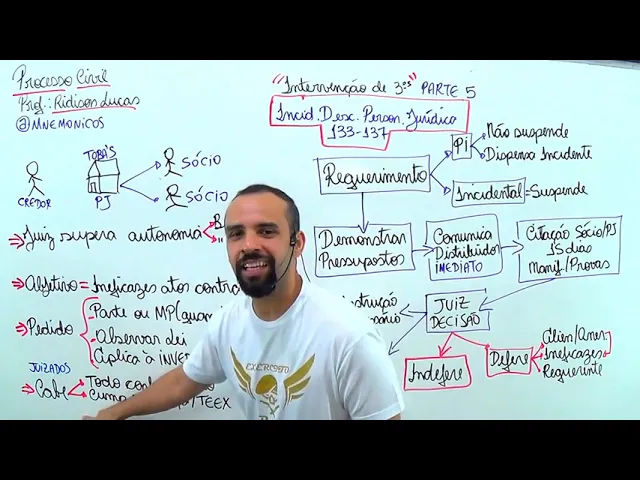 Processo Civil
Prof.: Ridison Lucas
@MNEMONICOS
TOBA'S
CREDOR
PJ
SÓCIO
SÓCIO
Juiz supera autonomia
Objetivo = Ineficazes atos contr
Pedido
- Parte ou MP (quan
- Observar Lei
- Aplica à INVER
JUIZADOS
Cabe
Todo con
Cump
/TEEX
"Intervenção de 3ºs" PARTE 5
Incid. Desc. Person. Jurídica
133-137
Requerimento
Pi
Não suspende
Dispensa Incidente
Incidental = Suspende
Demonstrar
Pressupostos
Comunica
Distribuidor
IMEDIATO
Citação Sócio/PJ
15 dias
Manif/Provas
JUIZ
DECISÃO
Indefere
Defere
Ineficazes
Requerente
EXERCITO